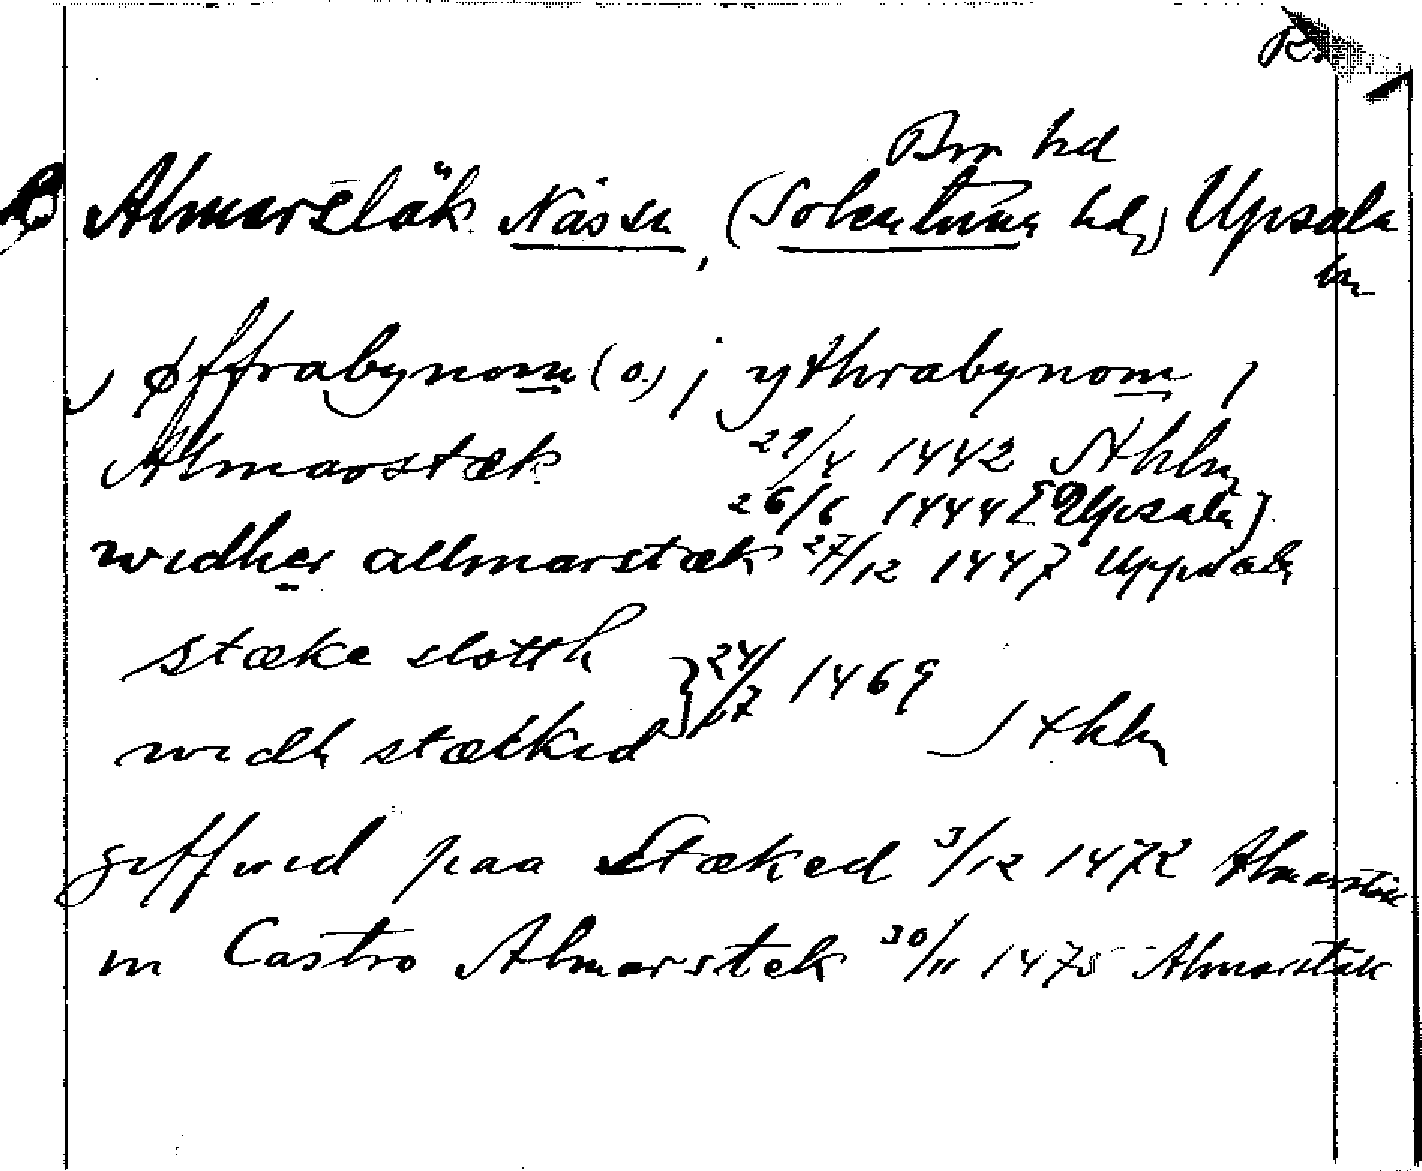 Bro hd
Almarstäk Näs sn, (Sollentuna hd,) Upsala
ln
j øffrabynom (o.) j ythrabynom j
Almarstæk 29/4 1442 Sthlm
26/6 1444 [Upsala]
widher allmarstæk 27/12 1447 Uppsala
stæke slotth
widh stækkid } 24/07 1469 Sthlm
giffwid paa Stæked 3/12 1472 Almarstäk
in Castro Almarstek 30/11 1475 Almarstäk